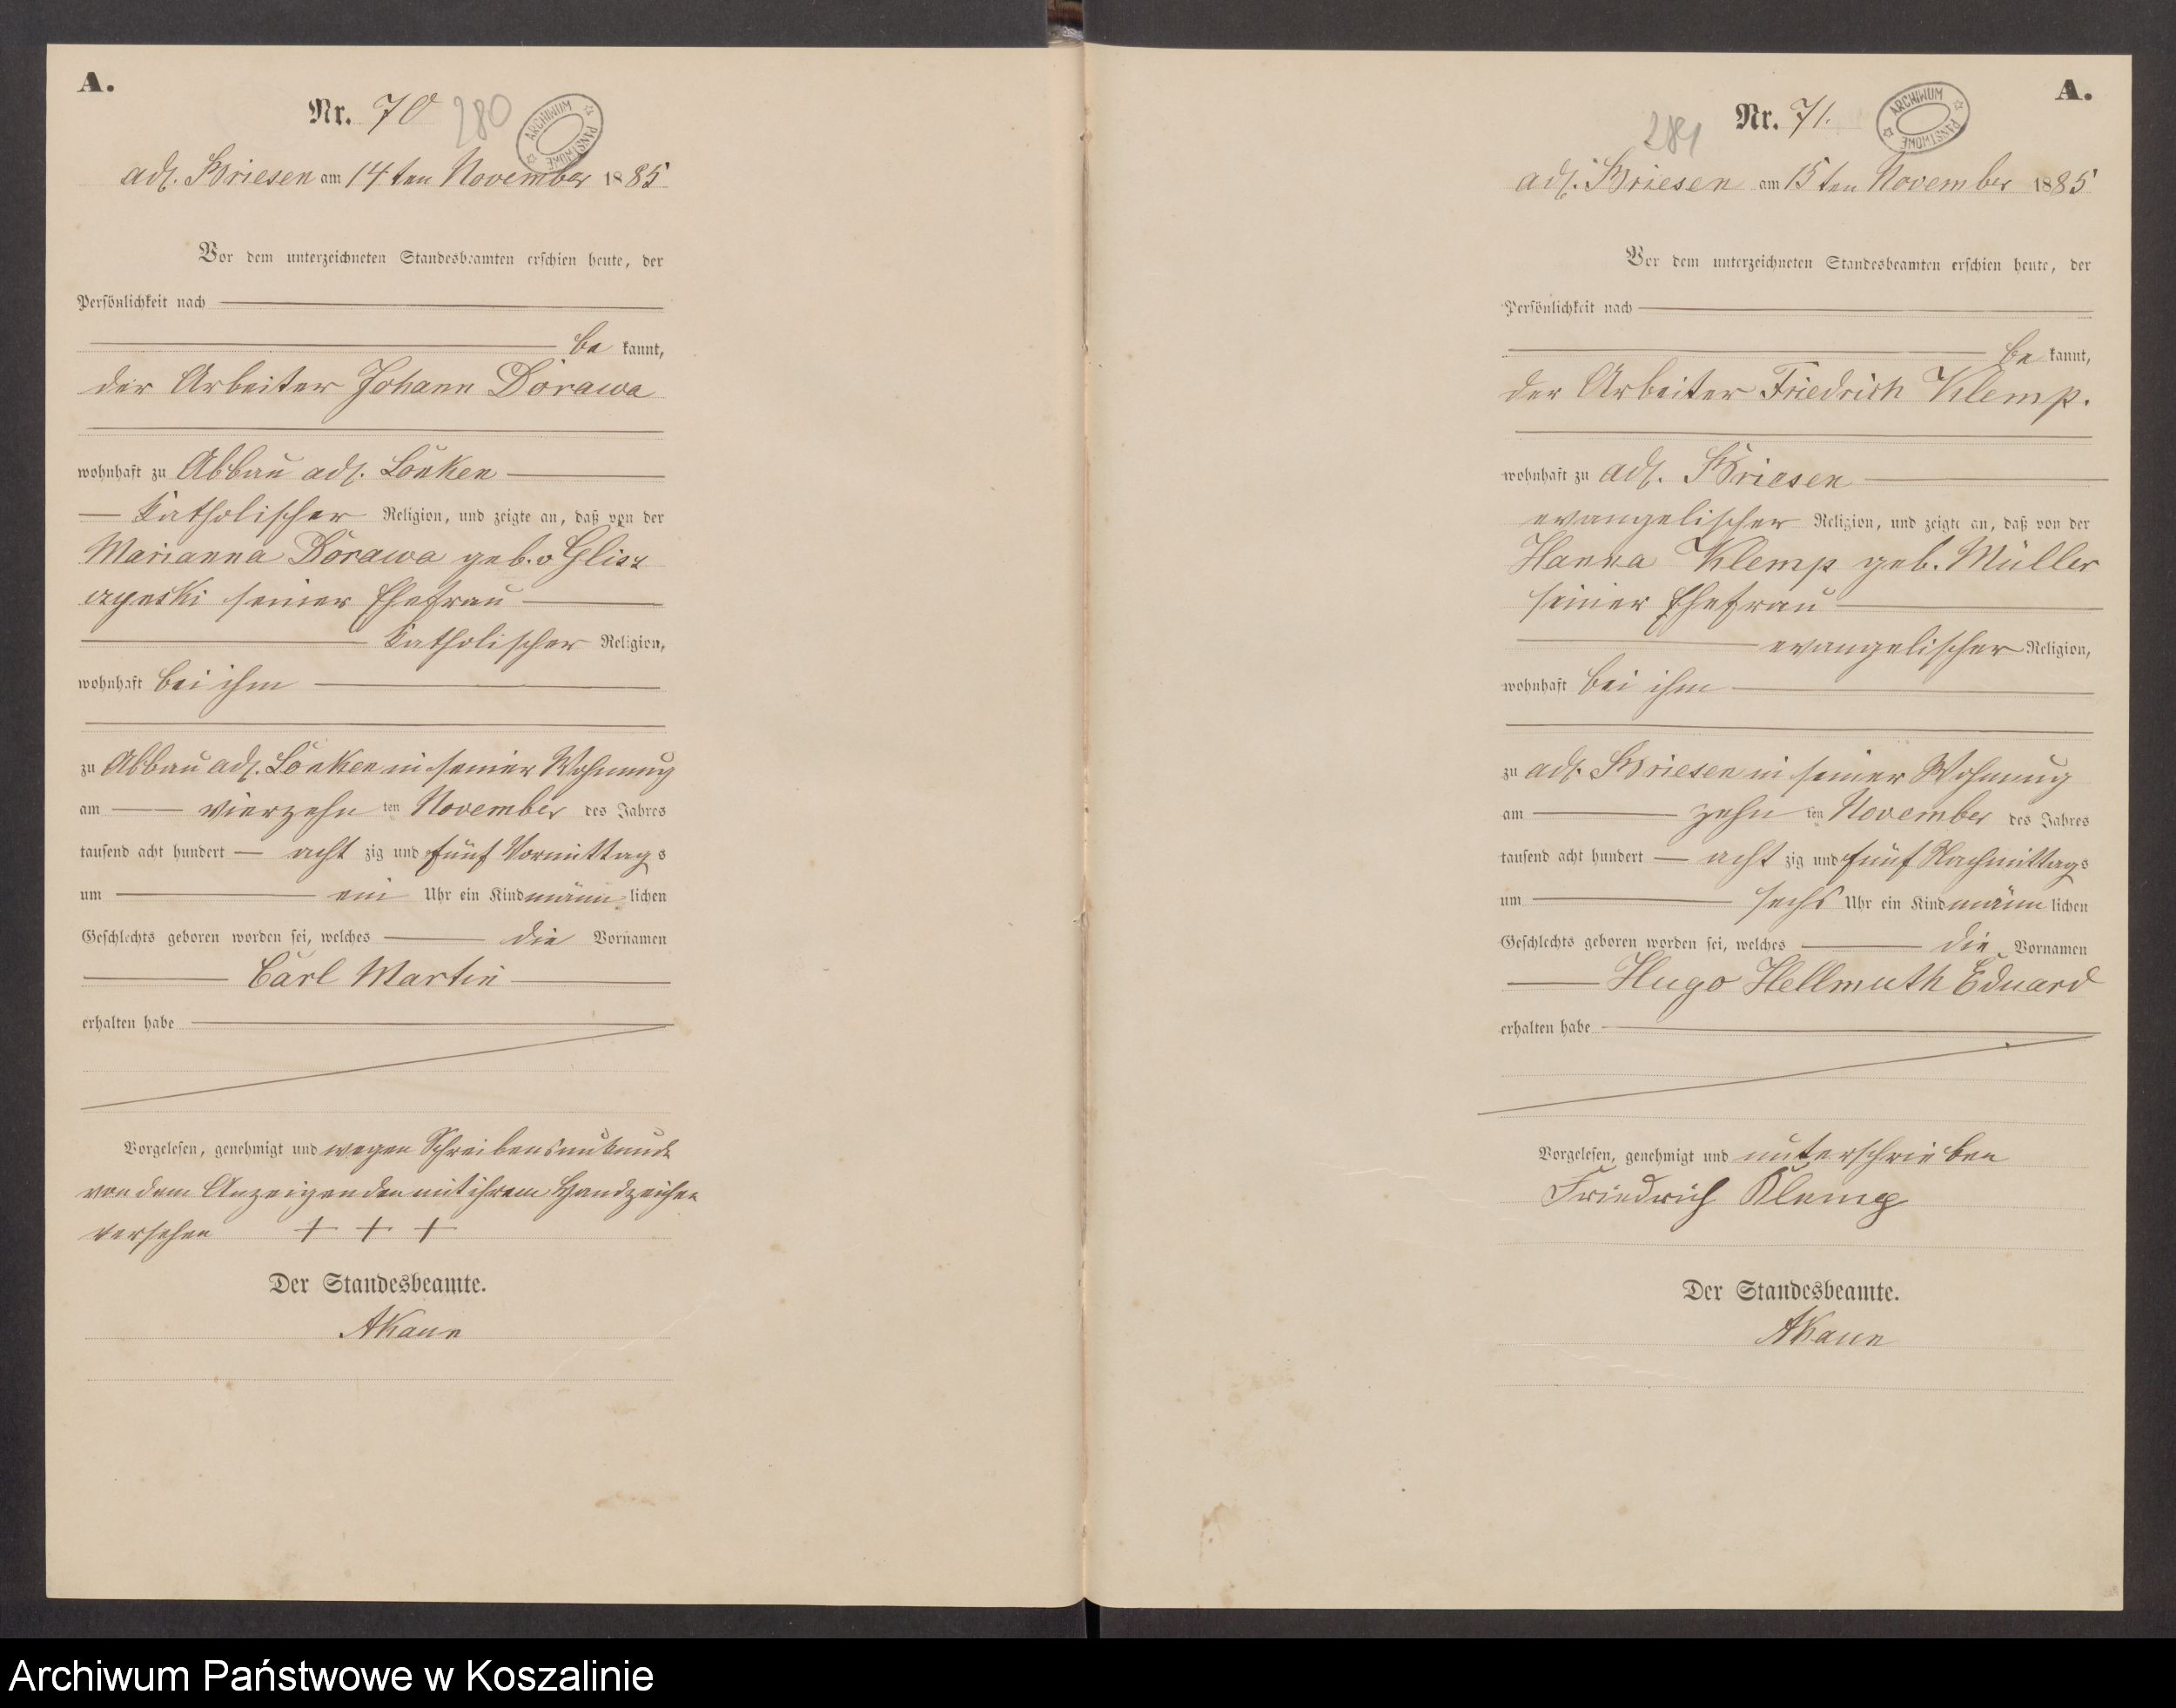 A.
Nr. 70
280
ARCHIWUM PAŃSTWOWE
adl. Briesen am 14ten November 1885
Vor dem unterzeichneten Standesbeamten erschien heute, der
Persönlichkeit nach
be kannt,
der Arbeiter Johann Dorawa
wohnhaft zu Abbau adl. Lonken
Katholischer Religion, und zeigte an, daß von der
Marianna Dorawa geb. v Glisz
czynski seiner Ehefrau
Katholischer Religion,
wohnhaft bei ihm
zu Abbau adl. Lonken in seiner Wohnung
am vierzehn ten November des Jahres
tausend acht hundert acht zig und fünf Vormittags
um ein Uhr ein Kind männ lichen
Geschlechts geboren worden sei, welches die Vornamen
Carl Martin
erhalten habe
Vorgelesen, genehmigt und wegen Schreibensunkunde
von dem Anzeigenden mit ihrem Handzeichen
versehen + + +
Der Standesbeamte.
A.
Nr. 71.
281
ARCHIWUM PAŃSTWOWE
adl. Briesen am 15ten November 1885
Vor dem unterzeichneten Standesbeamten erschien heute, der
Persönlichkeit nach
be kannt,
der Arbeiter Friedrich Klemp.
wohnhaft zu adl. Briesen
evangelischer Religion, und zeigte an, daß von der
Hanna Klemp geb. Müller
seiner Ehefrau
evangelischer Religion,
wohnhaft bei ihm
zu adl. Briesen in seiner Wohnung
am zehn ten November des Jahres
tausend acht hundert acht zig und fünf Nachmittags
um sechs Uhr ein Kind männ lichen
Geschlechts geboren worden sei, welches die Vornamen
Hugo Hellmuth Eduard
erhalten habe
Vorgelesen, genehmigt und unterschrieben
Friedrich Klemp
Der Standesbeamte.
Archiwum Państwowe w Koszalinie